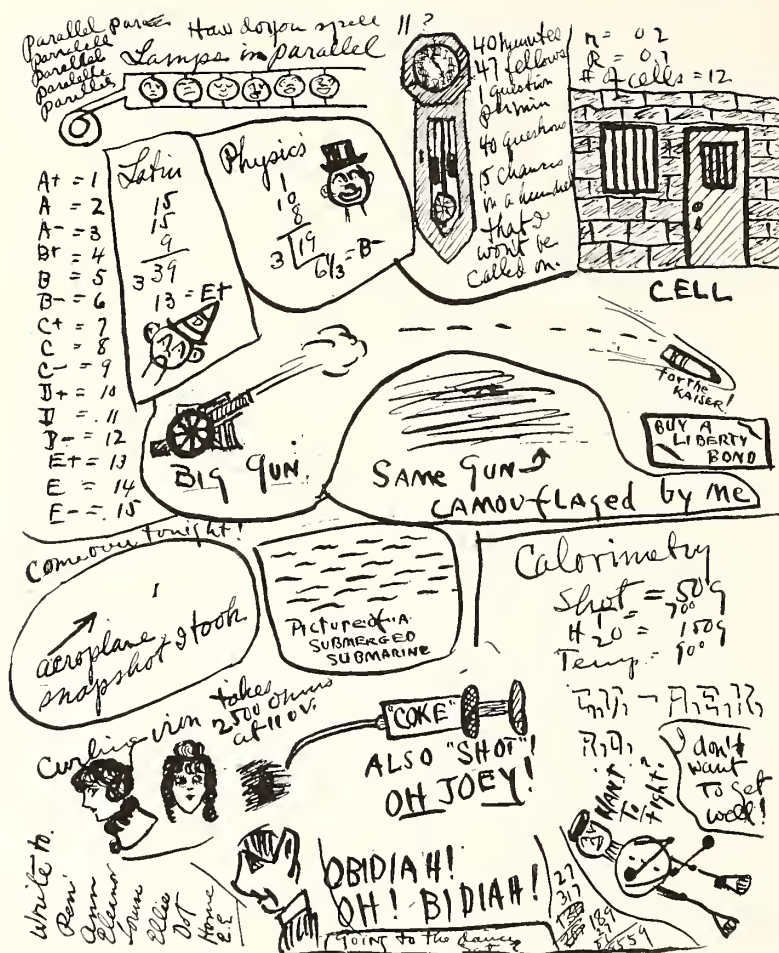 Parallel
How do you spell || ?
Lamps in parallel
40 minutes
47 fellows
1 question
per min
40 questions
15 chances
in a hundred
that I
won't be
called on.
r = 0.2
R = 0.7
# of cells = 12
CELL
A+ = 1
A = 2
A- = 3
B+ = 4
B = 5
B- = 6
C+ = 7
C = 8
C- = 9
D+ = 10
D = 11
D- = 12
E+ = 13
E = 14
E- = 15
Latin
15
15
9
3 39
13 = E+
D
Physics
1
10
8
3 19
6 1/3 = B-
BIG GUN
SAME GUN
CAMOUFLAGED by ME
for the
KAISER!
BUY A
LIBERTY
BOND
Come over tonight!
aeroplane
snapshot I took
Picture of A
SUBMERGED
SUBMARINE
Calorimetry
Shot = 50g
H2O = 150g
Temp. = 90°
Curling iron takes
2500 ohms
at 110 V.
"COKE"
ALSO "SHOT"!
OH JOEY!
I don't
want
to get
well!
WANT
TO
fight?
Write to.
Ann
Eleanor
Ellie
Dot
Home
E.E.
OBIDIAH!
OH! BIDIAH!
going to the dance
27
317
189